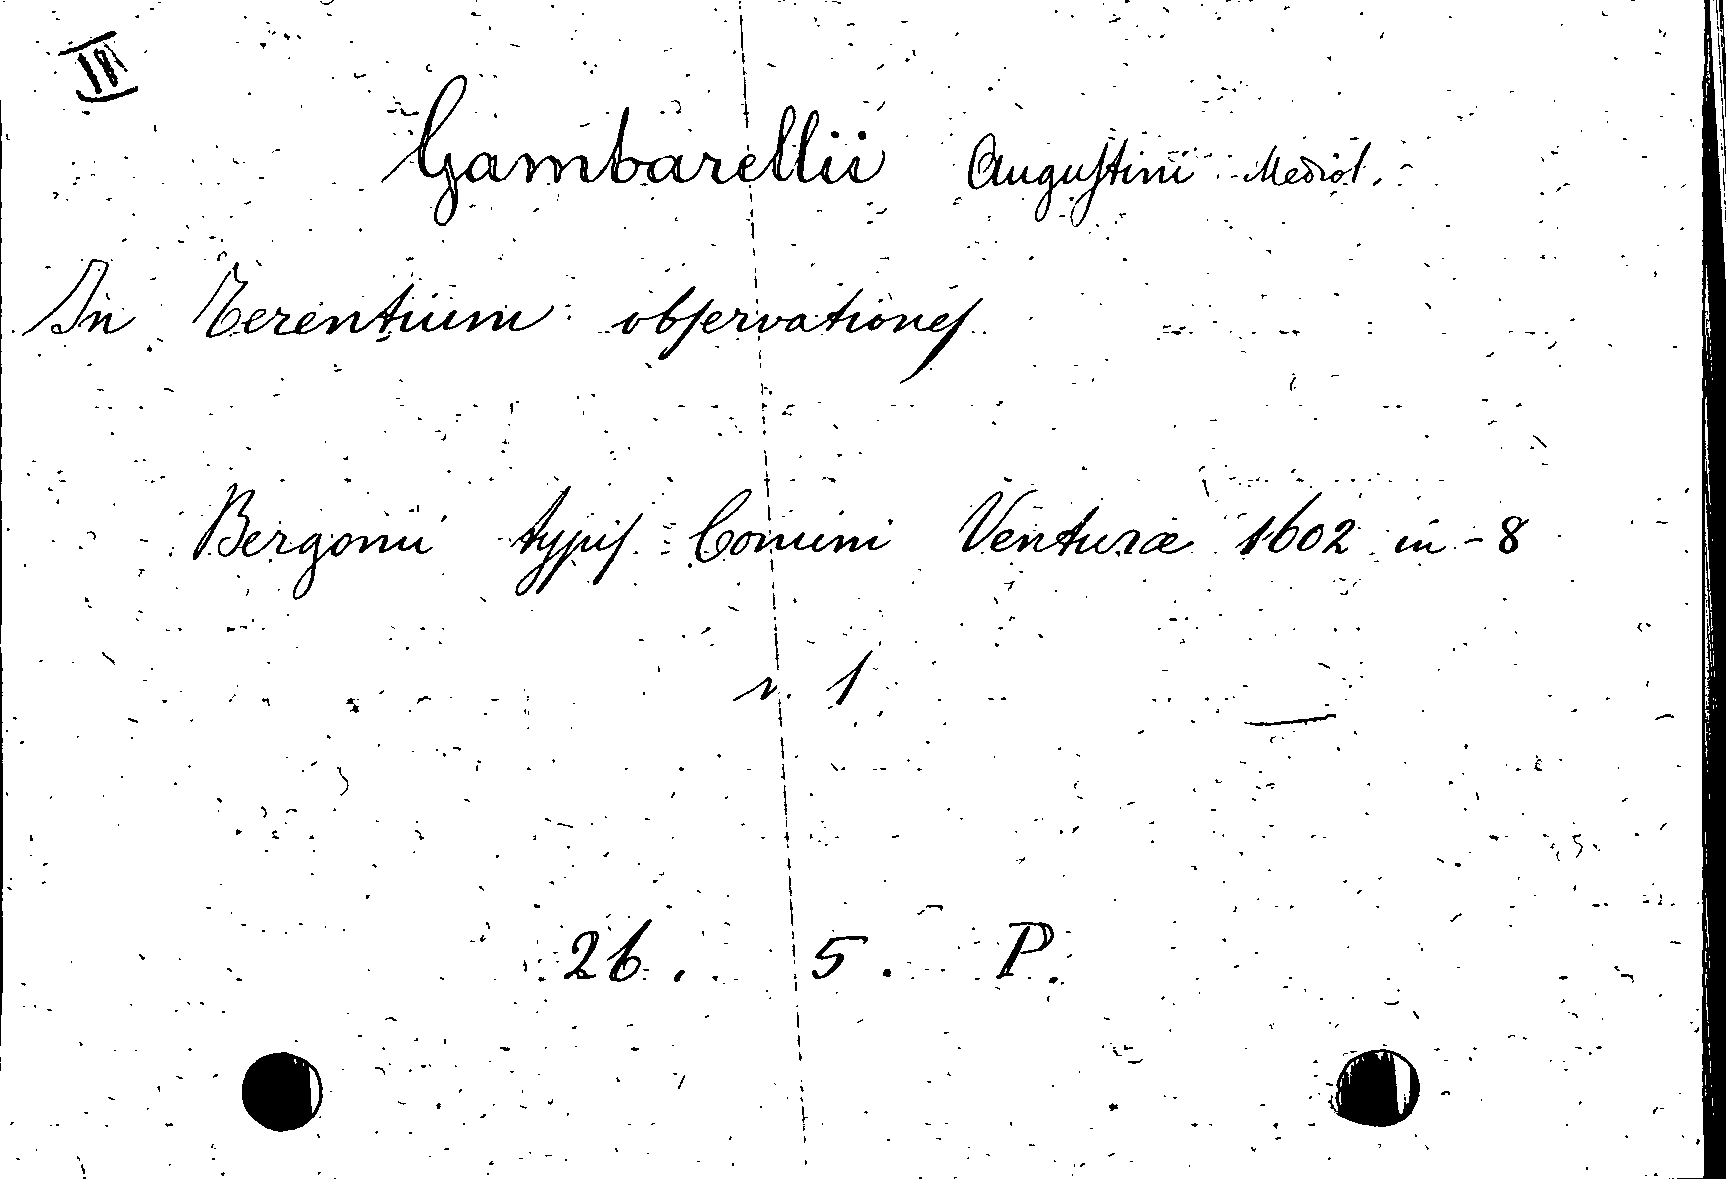 III
Gambarellii Auguſtini Mediol.
In Terentium obſervationeſ
Bergomi typiſ Comini Venturæ 1602 in-8
v. 1
26. 5. P.